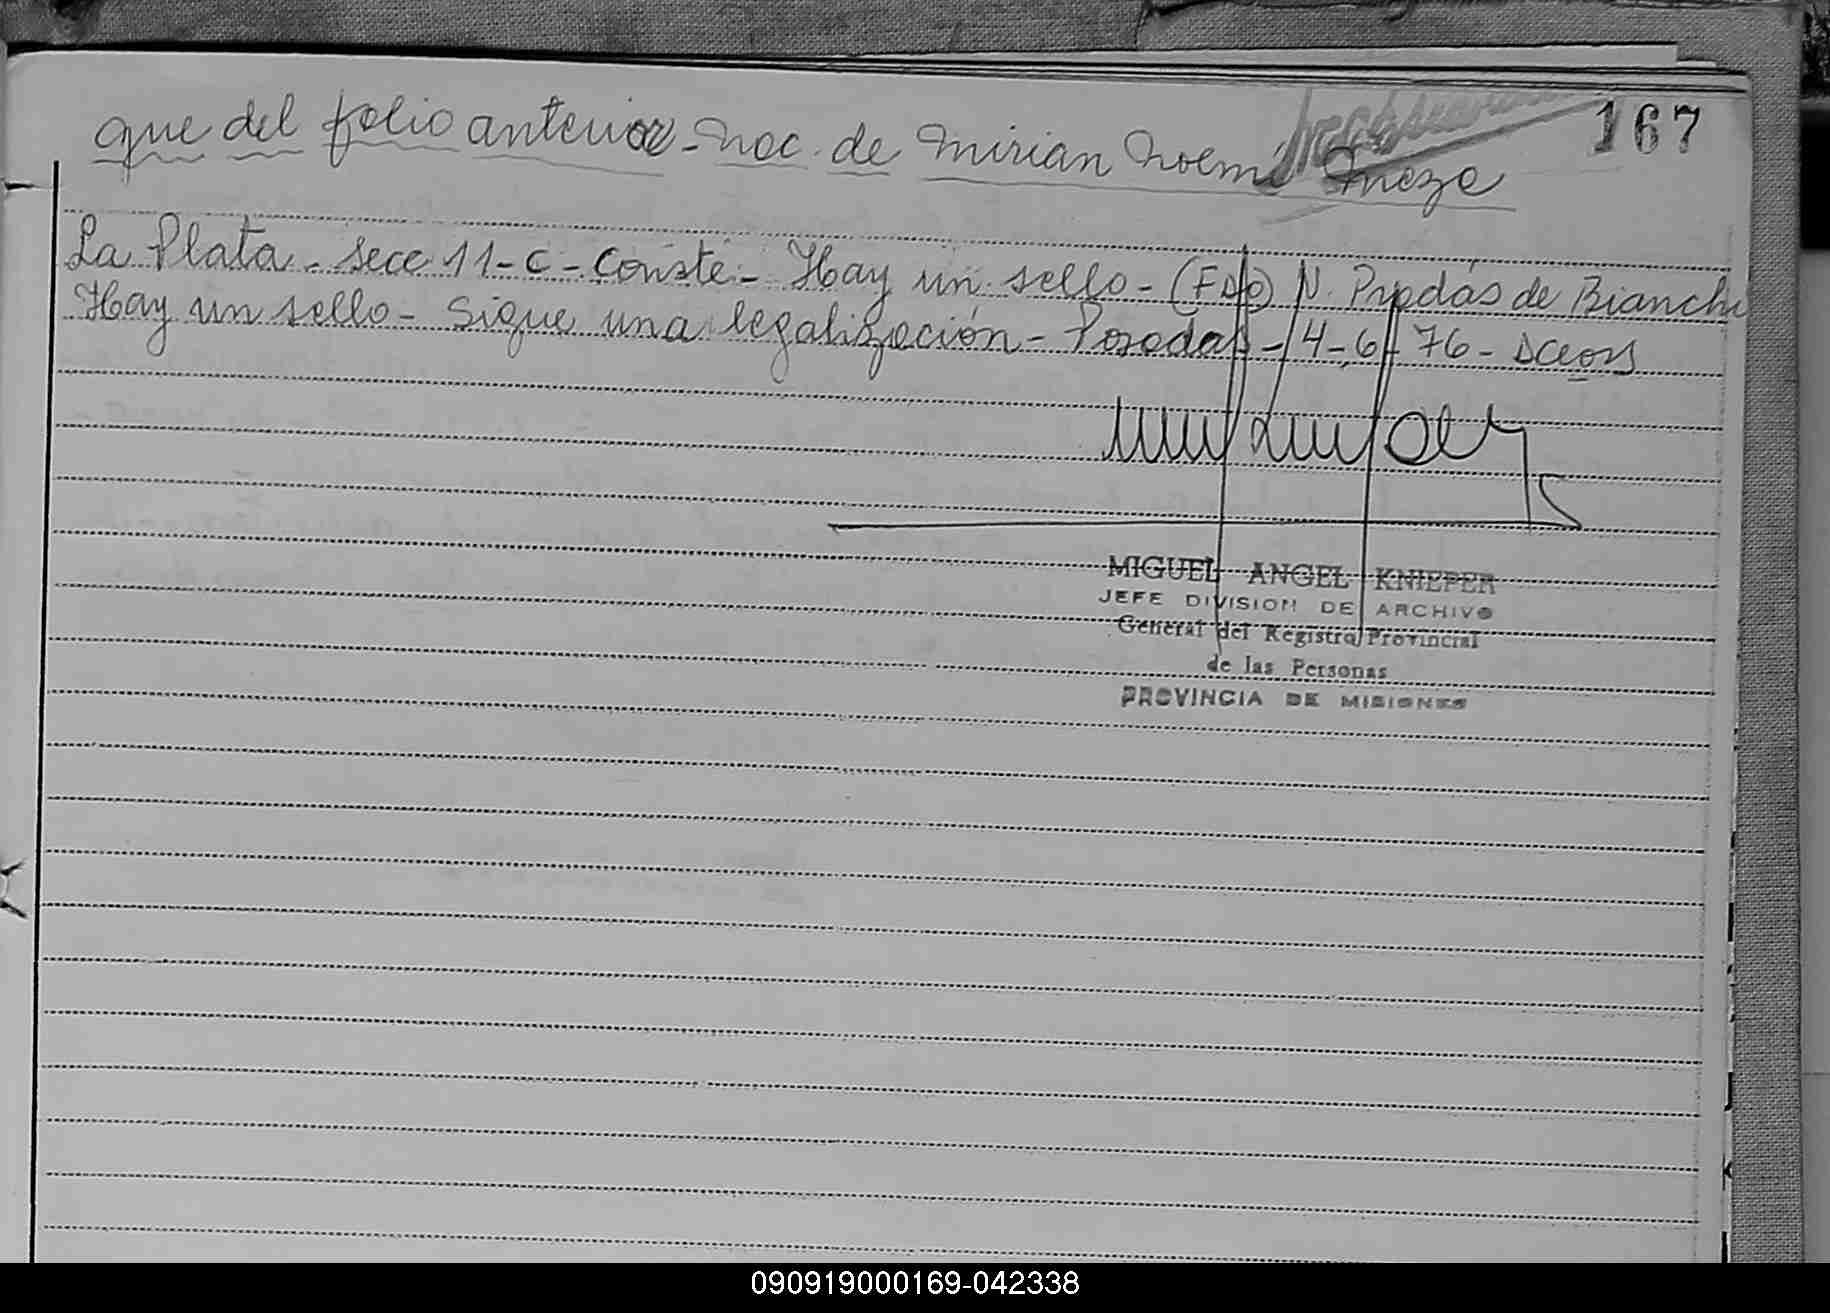 167
que del folio anterior - Nac. de Mirian Noemi Meza
La Plata - Secc 11-C - Conste - Hay un sello - (Fdo) N. Predás de Bianchi
Hay un sello - Sigue una legalización - Posadas - 4-6-76 -
MIGUEL ANGEL KNIEPER
JEFE DIVISION DE ARCHIVO
General del Registro Provincial
de las Personas
PROVINCIA DE MISIONES
090919000169-042338